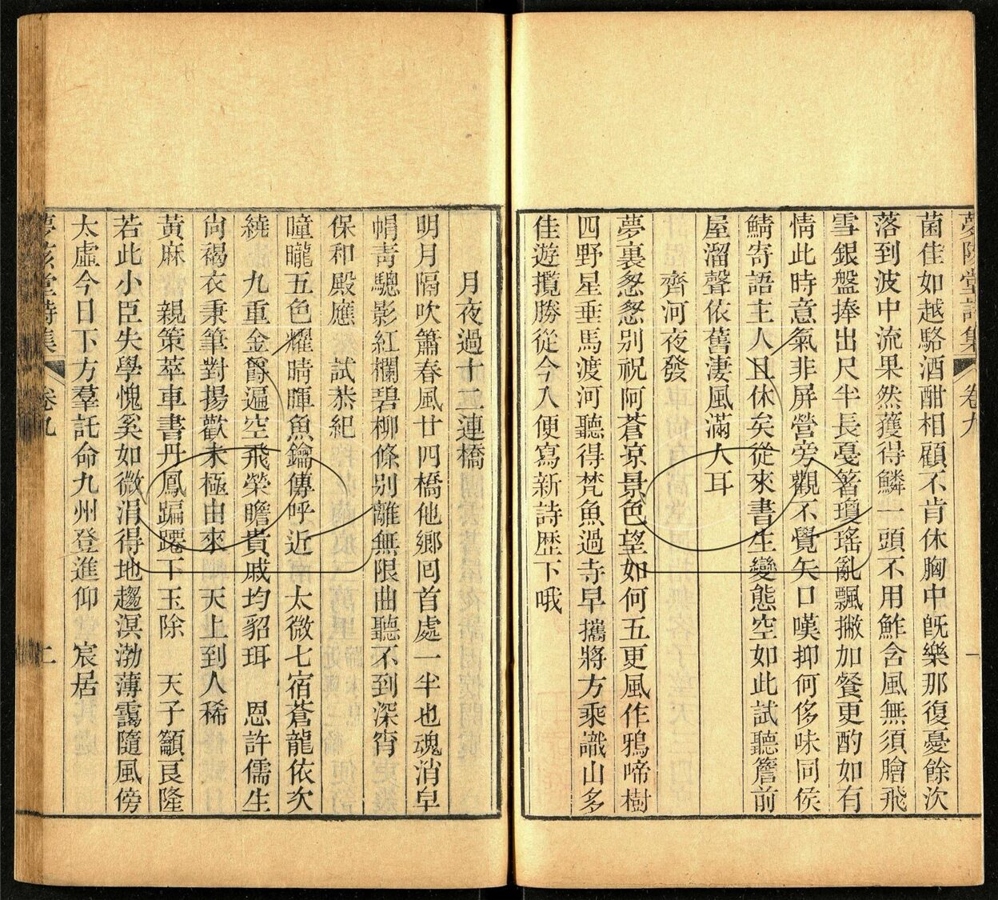 夢陔堂詩集 卷九 一
菌佳如越駱酒酣相顧不肯休胸中旣樂那復憂餘次
落到波中流果然獲得鱗一頭不用鮓含風無須膾飛
雪銀盤捧出尺半長戞箸瓊瑤亂飄撇加餐更酌如有
情此時意氣非屏營旁觀不覺矢口嘆抑何侈味同侯
鯖寄語主人且休矣從來書生變態空如此試聽簷前
屋溜聲依舊淒風滿人耳
齊河夜發
夢裏怱怱別祝阿蒼凉景色望如何五更風作鴉啼樹
四野星垂馬渡河聽得梵魚過寺早攜將方乘識山多
佳遊攬勝從今入便寫新詩歴下哦
月夜過十二連橋
明月隔吹簫春風廿四橋他鄉囘首處一半也魂消皁
帽靑驄影紅欄碧柳條別離無限曲聽不到深宵
保和殿應 試恭紀
曈曨五色耀晴暉魚鑰傳呼近 太微七宿蒼龍依次
繞 九重金爵遍空飛榮瞻貴戚均貂珥 恩許儒生
尙褐衣秉筆對揚歡未極由來 天上到人稀
黃麻 親策萃車書丹鳳蹁躚下玉除 天子籲㒪隆
若此小臣失學愧奚如微涓得地趨溟渤薄靄隨風傍
太虛今日下方羣託命九州登進仰 宸居
夢陔堂詩集 卷九 二